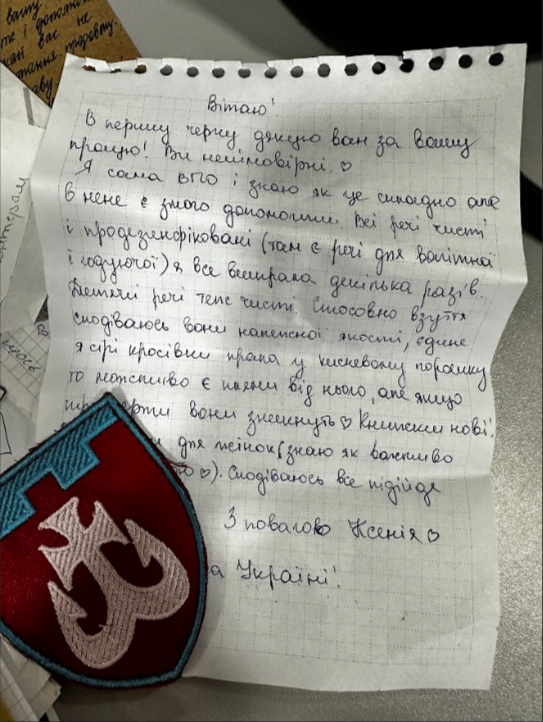 Вітаю!
В першу чергу дякую вам за вашу
працю! Ви неймовірні ♡
Я сама ВПО і знаю як це складно але
в мене є змога допомогти. Всі речі чисті
і продезенфіковані (там є речі для вагітної
і годуючої) я все випирала декілька разів.
Дитячі речі теж чисті. Стосовно взуття
сподіваюсь вони належної якості, єдине
я сірі кросівки прала у кисневому порошку
то можливо є плями від нього, але якщо
вони зникнуть ♡ Книжки нові!
для жінок (знаю як важливо
♡). Сподіваюсь все підійде
З повагою Ксенія ♡
а Україні!